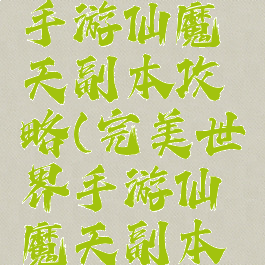 手游仙魔
天副本攻
略(完美世
界手游仙
魔天副本